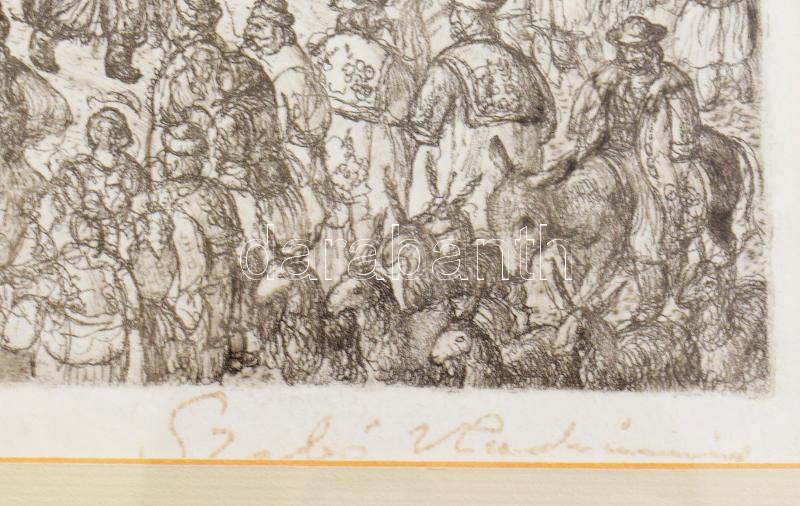 darabanth
Szabó Vladimir